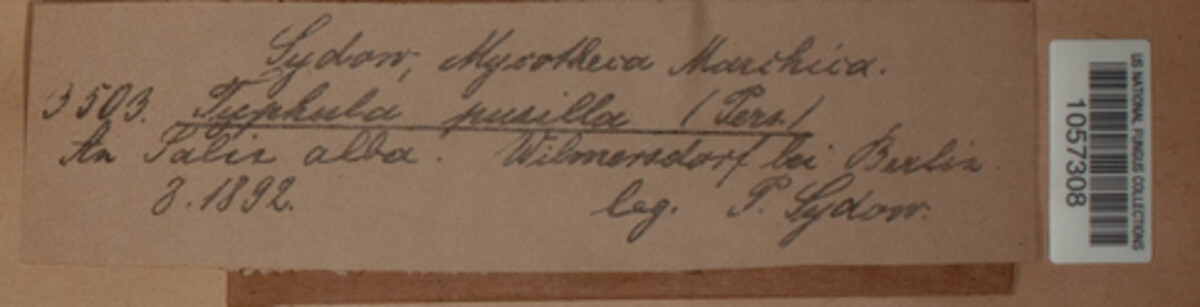 Sydow, Mycotheca Marchica.
3503. Typhula pusilla (Pers.)
An Salix alba. Wilmersdorf bei Berlin.
8.1892. leg. P. Sydow.
US NATIONAL FUNGUS COLLECTIONS
1057308